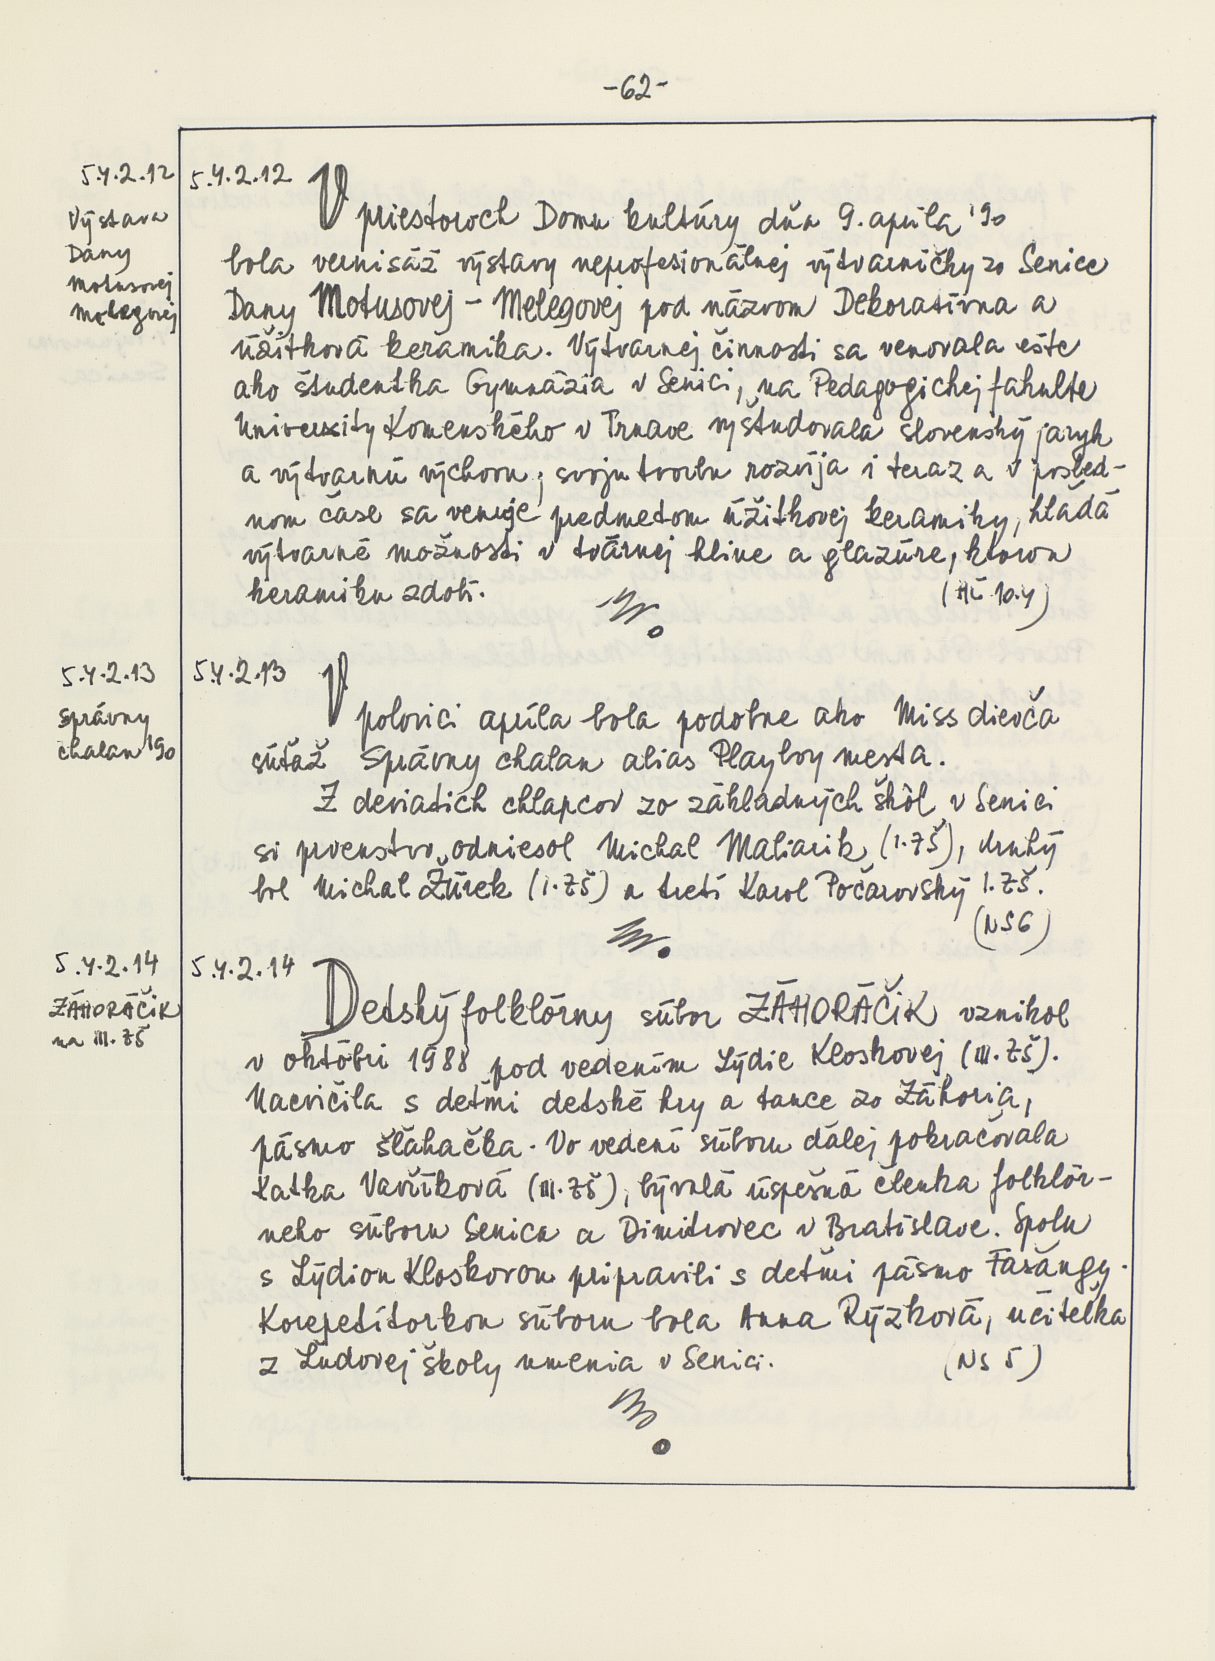 -62-
5.4.2.12
Výstava
Dany
Motusovej
Melegovej
5.4.2.12 V priestoroch Domu kultúry dňa 9. apríla '90
bola vernisáž výstavy neprofesionálnej výtvarníčky zo Senice
Dany Motusovej - Melegovej pod názvom Dekoratívna a
úžitková keramika. Výtvarnej činnosti sa venovala ešte
ako študentka Gymnázia v Senici, na Pedagogickej fakulte
University Komenského v Trnave vyštudovala slovenský jazyk
a výtvarnú výchovu; svoju tvorbu rozvíja i teraz a v posled-
nom čase sa venuje predmetom úžitkovej keramiky, hľadá
výtvarné možnosti v tvárnej hline a glazúre, ktorou
keramiku zdobí. (HČ 10.4)
5.4.2.13
Správny
chalan '90
5.4.2.13 V polovici apríla bola podobne ako Miss dievča
súťaž Správny chalan alias Playboy mesta.
Z deviatich chlapcov zo základných škôl v Senici
si prvenstvo odniesol Michal Maliarik (I.ZŠ), druhý
bol Michal Žúrek (I.ZŠ) a tretí Karol Počarovský I.ZŠ.
(NS6)
5.4.2.14
ZÁHORÁČIK
na III. ZŠ
5.4.2.14 Detský folklórny súbor ZÁHORÁČIK vznikol
v októbri 1988 pod vedením Lýdie Kloskovej (III. ZŠ).
Nacvičila s deťmi detské hry a tance zo Záhoria,
pásmo šľahačka. Vo vedení súboru ďalej pokračovala
Katka Vavríková (III. ZŠ), bývalá úspešná členka folklór-
neho súboru Senica a Dimitrovec v Bratislave. Spolu
s Lýdiou Kloskovou pripravili s deťmi pásmo Fašángy.
Korepetítorkou súboru bola Anna Rýzková, učiteľka
z Ľudovej školy umenia v Senici. (NS 5)